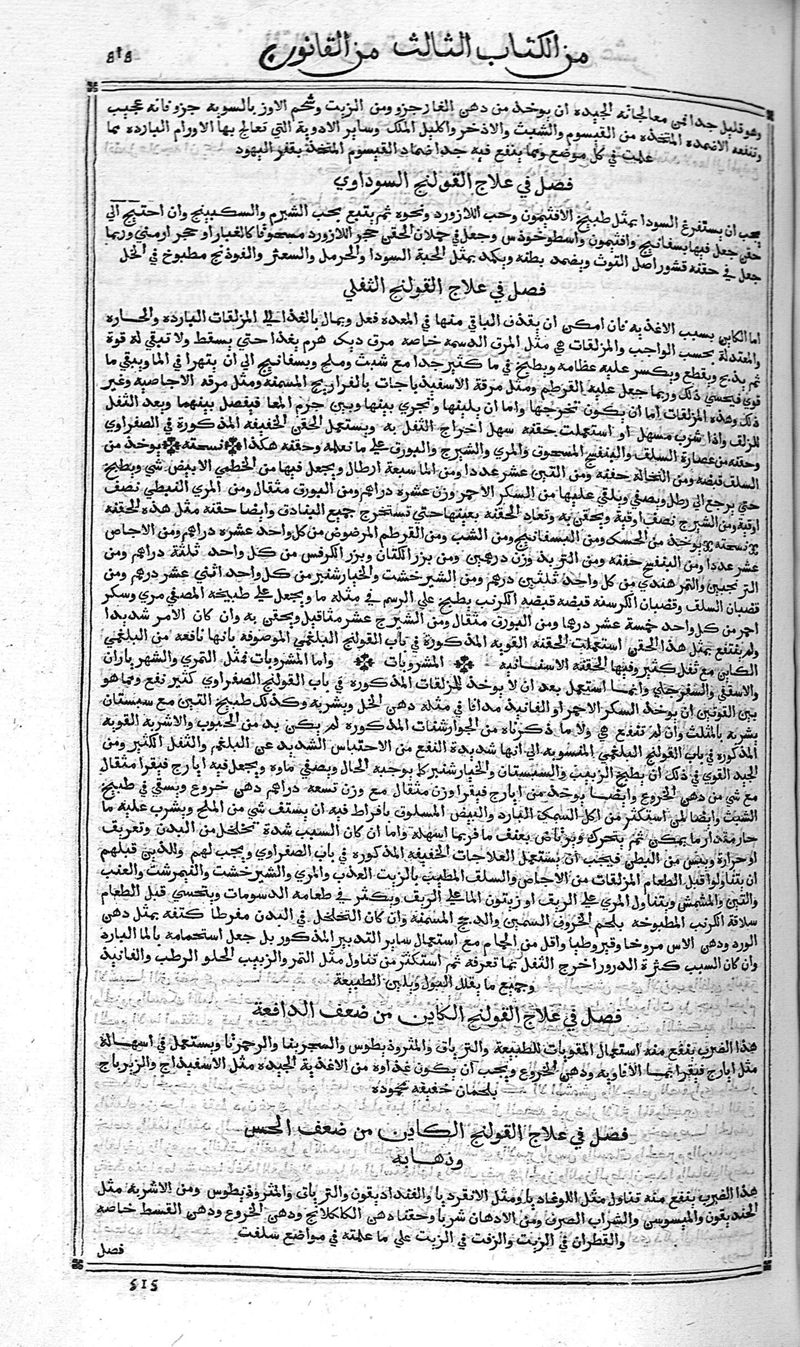 من الكتاب الثالث من القانون
٥١٥
وهو قليل جدا فمن معالجاته الجيده ان يوخذ من دهن الغار جزو ومن الزيت وشحم الاوز بالسويه جزو فانه عجيب
وتنفعه الاضمده المتخذه من القيسوم والشبث والاذخر واكليل الملك وساير الادوية التي تعالج بها الاورام البارده مما
علمت في كل موضع ومما ينفع فيه جدا ضماد القيسوم المتخذ بقفر اليهود
فصل في علاج القولنج السوداوي
يجب ان يستفرغ السودا بمثل طبيخ الافتيمون وحب اللازورد ونحوه ثم يتبع بحب الشبرم والسكبينج وان احتيج الي
حقن جعل فيها بسفانيج وافتيمون واسطوخوذس وجعل في حملان الحقن حجر اللازورد مسحوقا كالغبار او حجر ارمني وربما
جعل في حقنه قشور اصل التوث ويضمد بطنه ويكمد بمثل الحبة السودا والحرمل والسعتر والفوذنج مطبوخ في الخل
فصل في علاج القولنج الثفلي
اما الكاين بسبب الاغذيه فان امكن ان يقذف الباقي منها في المعده فعل ويمال بالغذا الي المزلقات البارده والحاره
والمعتدلة بحسب الواجب والمزلقات هي مثل المرق الدسمه خاصه مرق ديك هرم يغذا حتي يسقط ولا تبقي له قوة
ثم يذبح ويقطع ويكسر عليه عظامه ويطبخ في ما كثير جدا مع شبث وملح وبسفانيج الي ان يتهرا في الما ويبقي ما
قوي فيحسي ذلك وربما جعل عليه القرطم ومثل مرقة الاسفيذباجات بالفراريج المسمنه ومثل مرقه الاجاصيه وغير
ذلك وهذه المزلقات اما ان يكون تخرجها واما ان يلينها وتجري بينها وبين جرم المعا فيفصل بينهما ويعد الثفل
للزلف واذا شرب مسهل او استعملت حقنه سهل اخراج الثفل به ويستعمل الحقن الخفيفه المذكورة في الصفراوي
وحقنه من عصارة السلف والبنفسج المسحوق والمري والشيرج والبورق علي ما نعلمه وحقنه هكذا نسخته يوخذ من
السلف قبضه ومن النخالة حفنه ومن التين عشر عددا ومن الما سبعة ارطال ويجعل فيها من الخطمي الابيض شي ويطبخ
حتي يرجع الي رطل ويصفي ويلقي عليها من السكر الاحمر وزن عشره دراهم ومن البورق مثقال ومن المري النبطي نصف
اوقية ومن الشيرج نصف اوقية ويحقن به وتعاد الحقنه بعينها حتي تستخرج جميع البنادق وايضا حقنه مثل هذه الحقنه
نسخته يوخذ من الحسك ومن البسفانيج ومن الشب ومن القرطم المرضوض من كل واحد عشره دراهم ومن الاجاص
عشر عددا ومن البنفسج حفنه ومن التربد وزن درهمين ومن بزر الكتان وبزر الكرفس من كل واحد ثلثة دراهم ومن
الترنجبين والتمر هندي من كل واحد ثلثين درهم ومن الشيرخشت والخيار شنبر من كل واحد اثني عشر درهم ومن
قضبان السلف وقضبان الكرسنه قبضه قبضه الكرنب يطبخ علي الرسم في مثله ما ويجعل علي طبيخه المصفي مري وسكر
احمر من كل واحد خمسة عشر درهما ومن البورق مثقال ومن الشيرج عشر مثاقيل ويحقن به وان كان الامر شديدا
ولم ينتفع بمثل هذا الحقن استعملت الحقنه القويه المذكورة في باب القولنج البلغمي الموصوفه بانها نافعه من البلغمي
الكاين مع ثفل كثير وفيها الحقنه الاسفانيه المشروبات واما المشروبات فمثل التمري والشهرياران
والاسقفي والسفرجلي وانما استعمل بعد ان لا يوجد للمزلقات المذكوره في باب القولنج الصفراوي كثير نفع ومما هو
بين القوتين ان يوخذ السكر الاحمر او الفانيذ مدافا في مثله دهن الخل ويشربه وكذلك طبيخ التين مع سبستان
يشربه بالمثلث وان لم تنفع هي ولا ما ذكرناه من الجوارشنات المذكوره لم يكن بد من الحبوب والاشربة القوية
المذكوره في باب القولنج البلغمي المنسوبه الي انها شديدة النفع من الاحتباس الشديد عن البلغم والثفل الكثير ومن
الجيد القوي في ذلك ان يطبخ الزبيب والسبستان والخيار شنبر كما يوجبه الحال ويصفي ماوه ويجعل فيه ايارج فيقرا مثقال
مع شي من دهن الخروع وايضا يوخذ من ايارج فيقرا وزن مثقال مع وزن تسعه دراهم دهن خروع ويسقي في طبيخ
الشبث وايضا لمن استكثر من اكل السمك البارد والبيض المسلوق بافراط فيه ان يستف شي من الملح ويشرب عليه ما
حار مقدار ما يمكن ثم يتحرك ويرتاض بعنف ما فربما اسهله واما ان كان السبب شدة تخلخل من البدن وتعريف
او حرارة ويبس من البطن فيجب ان يستعمل العلاجات الخفيفه المذكوره في باب الصفراوي ويجب لهم وللذين قبلهم
ان يتناولوا قبل الطعام المزلقات من الاجاص والسلف المطيب بالزيت العذب والمري والشيرخشت والنيمرشت والعنب
والتين والمشمش ويتناول المري علي الريف او زيتون الما علي الريف ويكثر في طعامه الدسومات ويتحسي قبل الطعام
سلاقة الكرنب المطبوخه بلحم الخروف السمين والدجج المسمنه وان كان التخلخل في البدن مفرطا كثفه بمثل دهن
الورد ودهن الاس مروخا وقيروطيا واقل من الحمام مع استعمال ساير التدبير المذكور بل جعل استحمامه بالما البارد
وان كان السبب كثرة الدرور اخرج الثفل بما تعرفه ثم استكثر من تناول مثل التمر والزبيب الحلو الرطب والفانيذ
وجميع ما يقلل البول ويلين الطبيعة
فصل في علاج القولنج الكاين من ضعف الدافعة
هذا الضرب ينفع منه استعمال المقويات للطبيعة والترياق والمثروذيطوس والسجرينا والدحمرثا ويستعمل في اسهاله
مثل ايارج فيقرا بما الافاويه ودهن الخروع ويجب ان يكون غذاوه من الاغذية الجيده مثل الاسفيداج والزيرباج
بلحمان خفيفه محموده
فصل في علاج القولنج الكاين من ضعف الحس
وذهابه
هذا الضرب ينفع منه تناول مثل اللوغاديا ومثل الانقرديا والفنداديقون والترياق والمثروذيطوس ومن الاشربه مثل
الخنديقون والميسوسي والشراب الصرف ومن الادهان شربا وحقنا دهن الكلكلانج ودهن الخروع ودهن القسط خاصه
والقطران في الزيت والزفت في الزيت علي ما علمته في مواضع سلفت
فصل
515